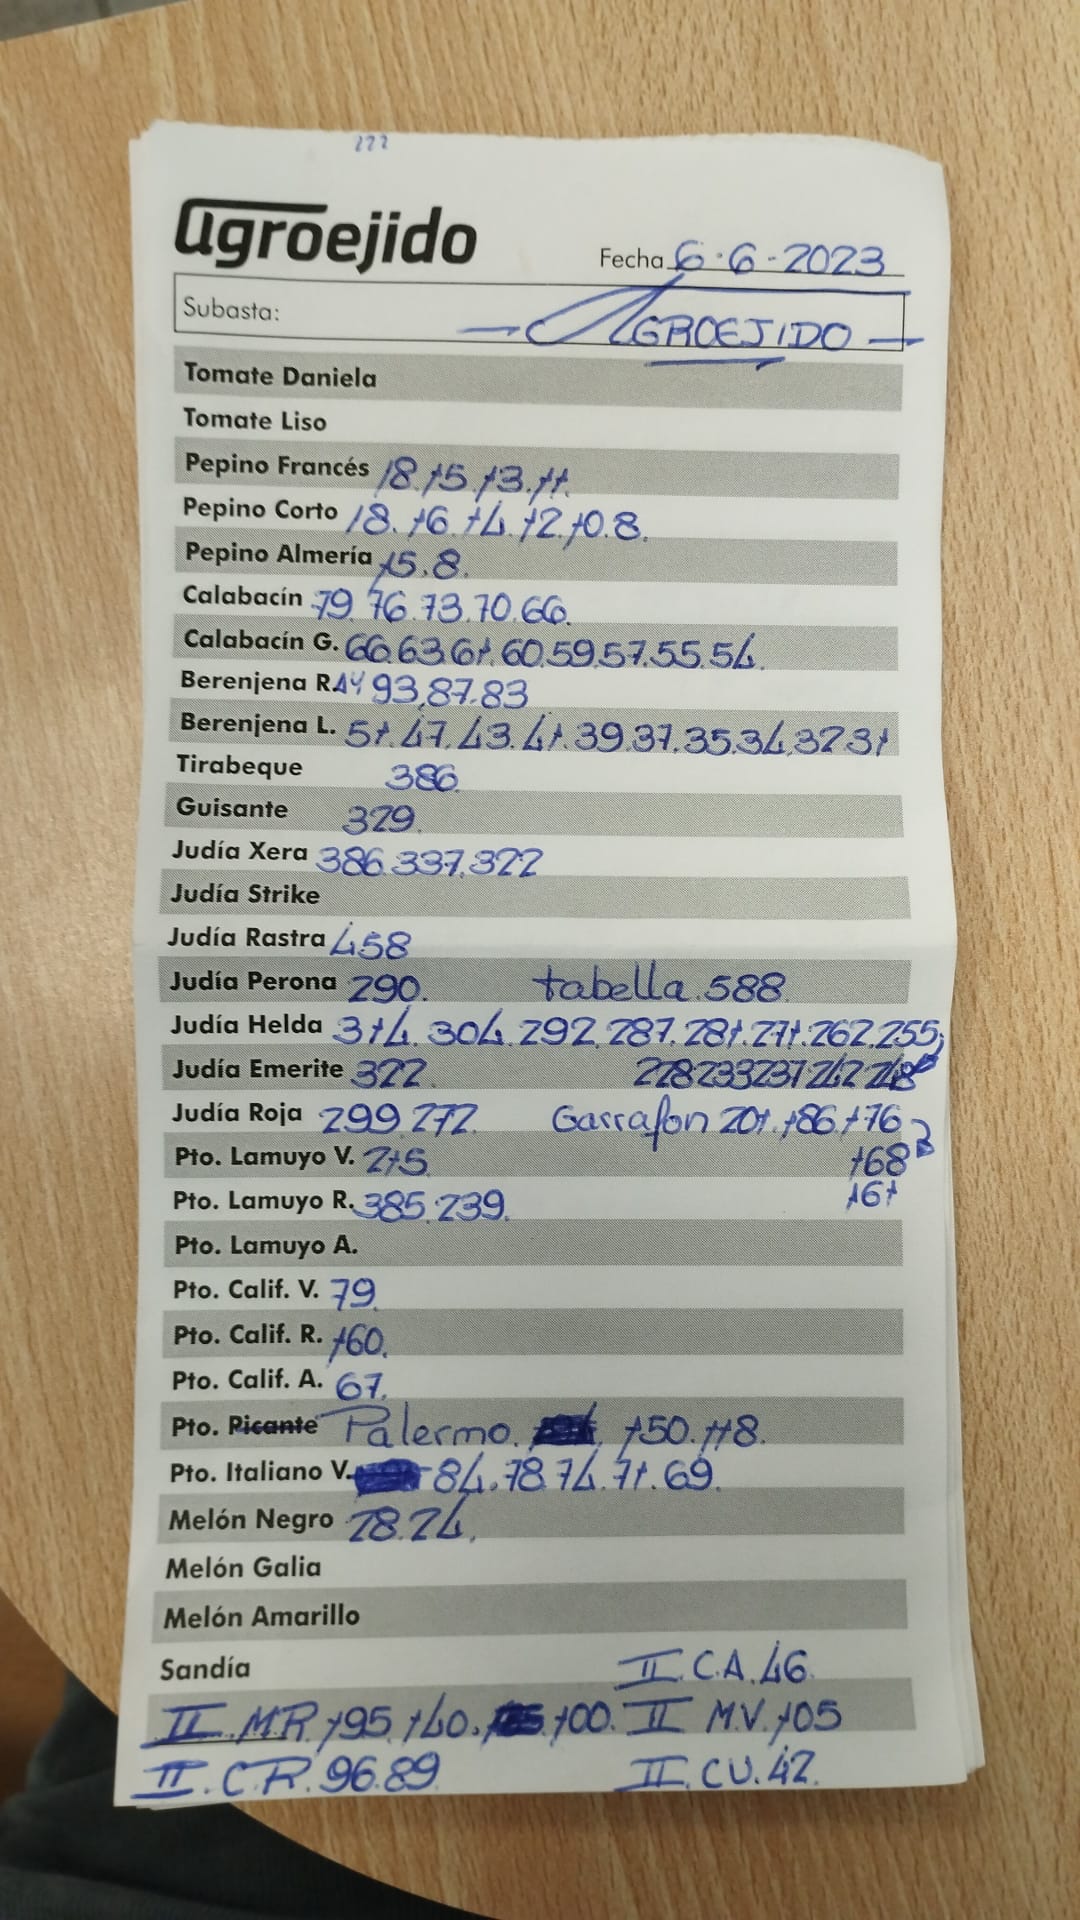 agroejido
Fecha 6-6-2023
Subasta: AGROEJIDO
Tomate Daniela
Tomate Liso
Pepino Francés 18.15.13.11.
Pepino Corto 18.16.14.12.10.8.
Pepino Almería 15.8.
Calabacín 79.76.73.70.66.
Calabacín G. 66.63.61.60.59.57.55.54.
Berenjena RAY 93.87.83
Berenjena L. 51.47.43.41.39.37.35.34.32.31
Tirabeque 386.
Guisante 329.
Judía Xera 386.337.322
Judía Strike
Judía Rastra 458
Judía Perona 290. tabella.588.
Judía Helda 314.304.292.287.281.271.262.255,
Judía Emerite 322. 228 233 237 242 248
Judía Roja 299.272. Garrafon 201.186.176
Pto. Lamuyo V. 215. 168
Pto. Lamuyo R. 385.239. 161
Pto. Lamuyo A.
Pto. Calif. V. 79.
Pto. Calif. R. 160.
Pto. Calif. A. 67.
Pto. Picante Palermo. 150.118.
Pto. Italiano V. 84.78.74.71.69.
Melón Negro 28.24.
Melón Galia
Melón Amarillo
Sandía II.C.A.46.
II.M.R 195.140. 100. II M.V.105
II.C.R.96.89 II.CU.42.